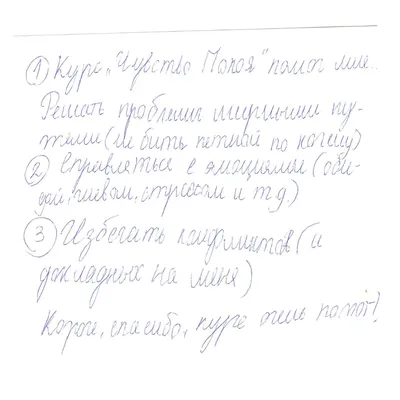 ① Курс „Чувство Покоя" помог мне..
Решать проблемы мирными пу-
тями (не бить петкой по ногам)
② Справляться с эмоциями (оби-
дой, гневом, стрессом и т.д.)
③ Избегать конфликтов (и
докладных на меня)
Короч, спасибо, курс очень помог!